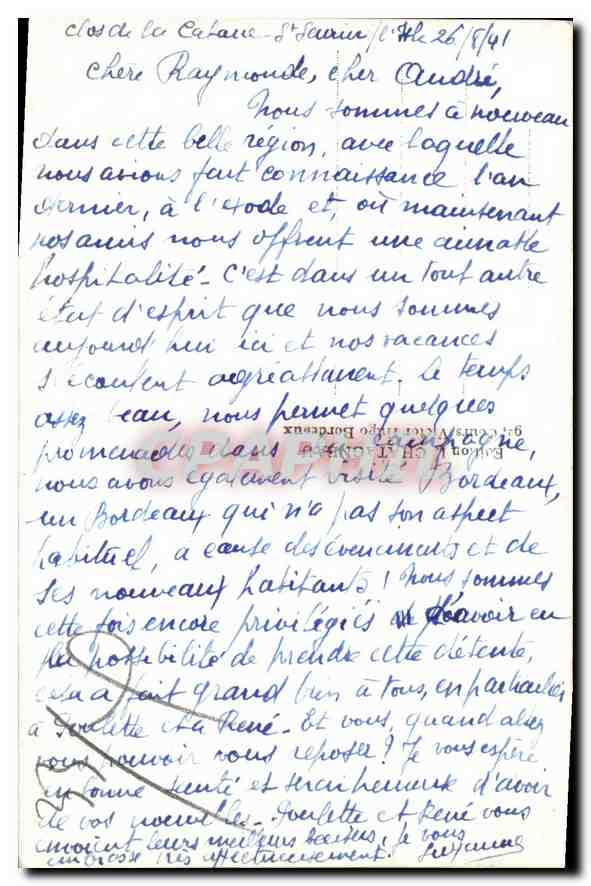 Clos de la Cabane - St Seurin s/l'Isle 26/8/41
Chère Raymonde, cher André,
Nous sommes à nouveau
dans cette belle région, avec laquelle
nous avions fait connaissance l'an
dernier, à l'exode et, où maintenant
nos amis nous offrent une aimable
hospitalité - C'est dans un tout autre
état d'esprit que nous sommes
aujourd'hui ici et nos vacances
s'écoulent agréablement. Le temps
assez beau, nous permet quelques
promenades dans la campagne,
nous avons également visité Bordeaux,
un Bordeaux qui n'a pas son aspect
habituel, a cause des évènements et de
ses nouveaux habitants ! Nous sommes
cette fois encore privilégiés d'avoir eu
la possibilité de prendre cette détente,
cela a fait grand bien à tous, en particulier
à Paulette et à René - Et vous, quand allez
vous pouvoir vous reposer ? Je vous espère
en bonne santé et serai heureuse d'avoir
de vos nouvelles - Paulette et René vous
envoient leurs meilleurs baisers, je vous
embrasse très affectueusement. Suzanne
Edition CHATAGNEAU
9, Cours Victor Hugo Bordeaux
CPAPHIL